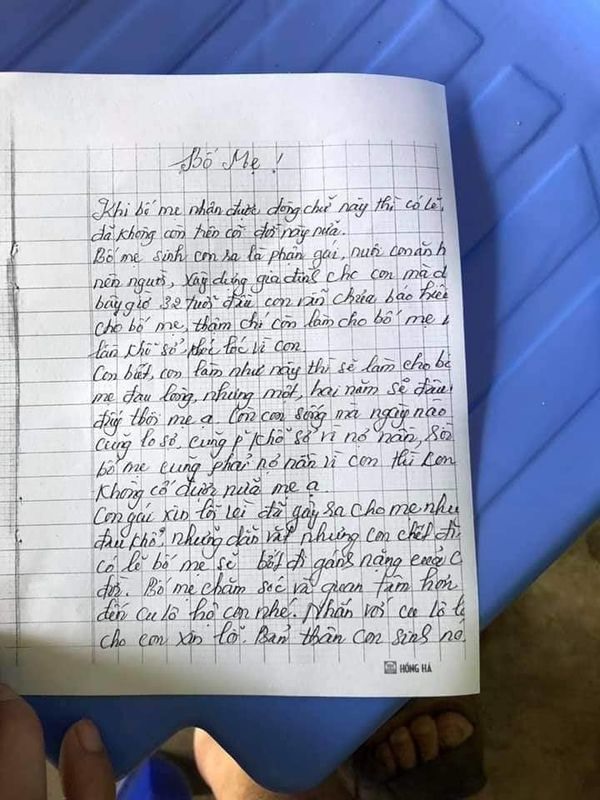 Bố Mẹ !
Khi bố mẹ nhận được dòng chữ này thì có lẽ,
đã không còn trên cõi đời này nữa.
Bố mẹ sinh con ra là phận gái, nuôi con ăn h
nên người, xây dựng gia đình cho con mà
bây giờ 32 tuổi đầu con vẫn chưa báo hiếu
cho bố mẹ, thậm chí còn làm cho bố mẹ
khổ sở, vì con.
Con biết, con làm như này thì sẽ làm cho bố
mẹ đau lòng, nhưng một, hai năm sẽ
thôi mẹ ạ. Còn con sống mà ngày nào
cũng lo sợ, cũng khổ sở vì nợ nần,
bố mẹ cũng phải nợ nần vì con thì con
không cố được nữa mẹ ạ
Con gái xin lỗi lại đã gây ra cho mẹ
đau khổ những dằn vặt nhưng con chết đi
có lẽ bố mẹ sẽ bớt đi gánh nặng của c
đời. Bố mẹ chăm sóc và quan tâm hơn
đến cu lô hộ con nhé. Nhắn với cu lô
cho con xin lỗi. Bản thân con sinh nó
HỒNG HÀ